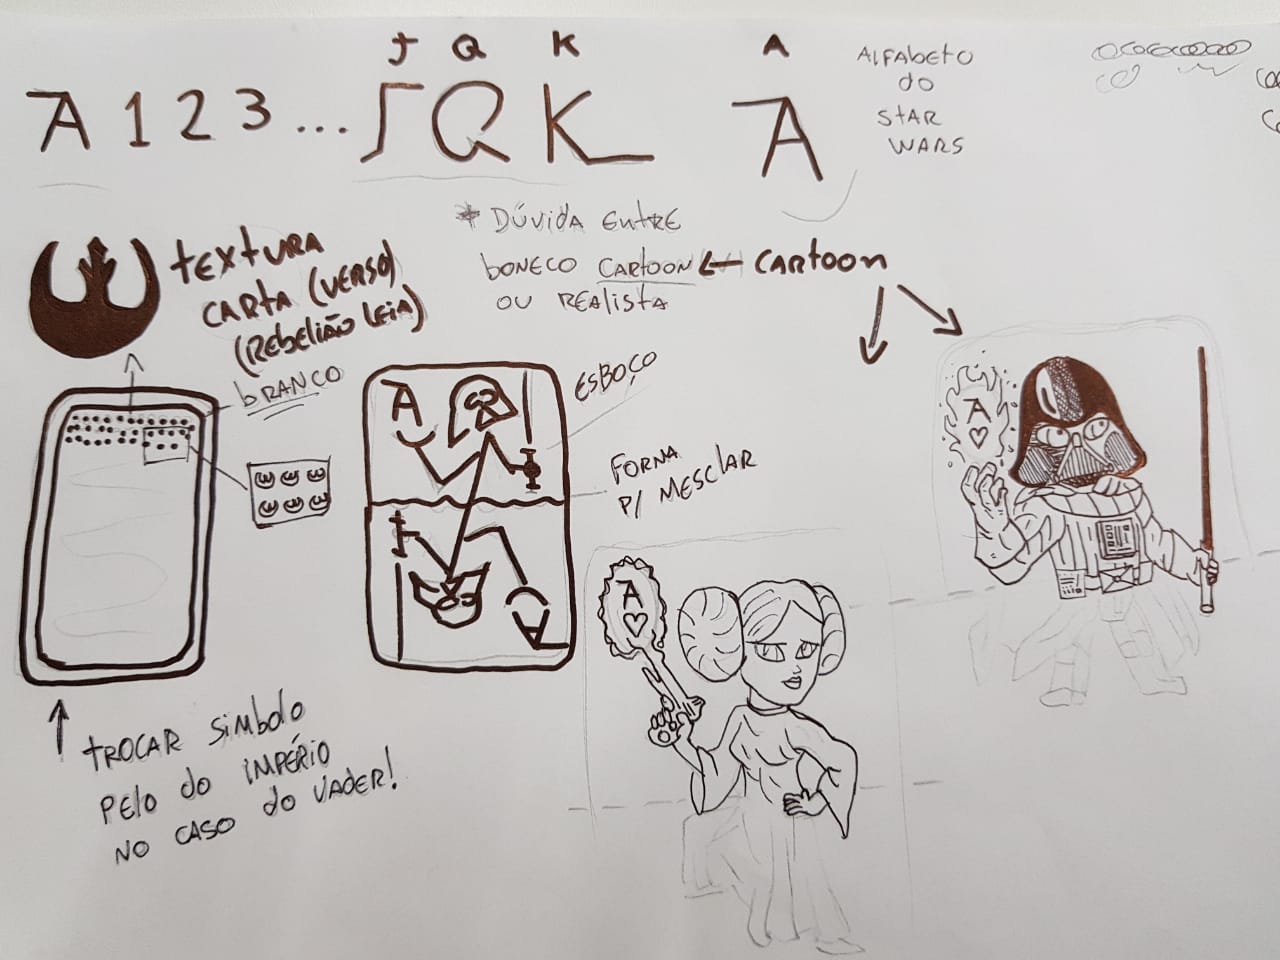 J Q K A
A 1 2 3 ... J Q K A
ALFABETO
DO
STAR
WARS
* DÚVIDA ENTRE
BONECO CARTOON ← CARTOON
OU REALISTA
TEXTURA
CARTA (VERSO)
(REBELIÃO LEIA)
BRANCO
ESBOÇO
A
A
FORMA
P/ MESCLAR
A
A
TROCAR SIMBOLO
PELO DO IMPÉRIO
NO CASO DO VADER!